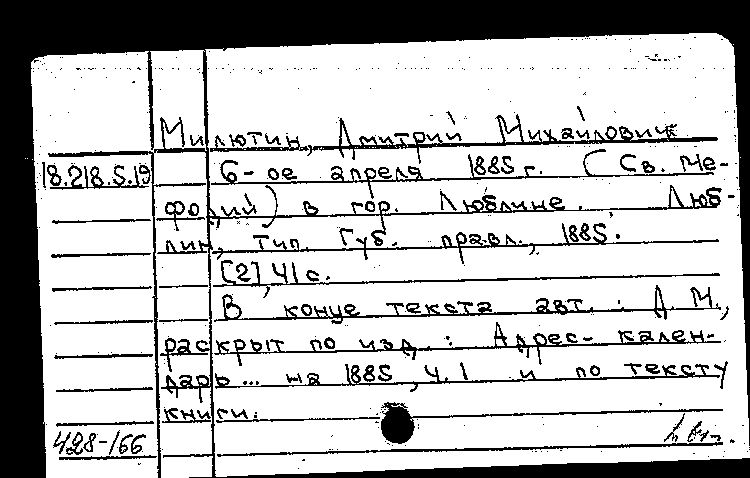 Милютин, Дмитрий Михайлович
18.218.5.19 6-ое апреля 1885 г. (Св. Ме-
фодий) в гор. Люблине. Люб-
лин, тип. Губ. правл., 1885.
[2], 41 с.
В конце текста авт.: Д. М.,
раскрыт по изд.: Адрес-кален-
дарь... на 1885, ч. 1 и по тексту
книги.
428-166